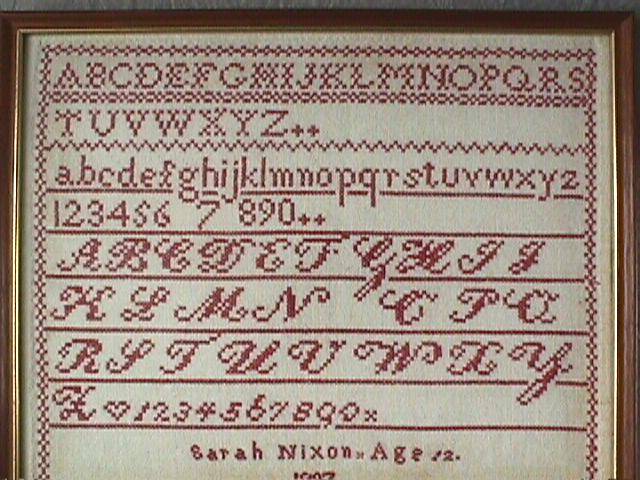 ABCDEFGHIJKLMNOPQRS
TUVWXYZ
abcdefghijklmnopqrstuvwxyz
123456 7 890
ABCDEFGHIJ
KLMN OPQ
RSTUVWXY
Z♡1234567890x
Sarah Nixon Age 12.